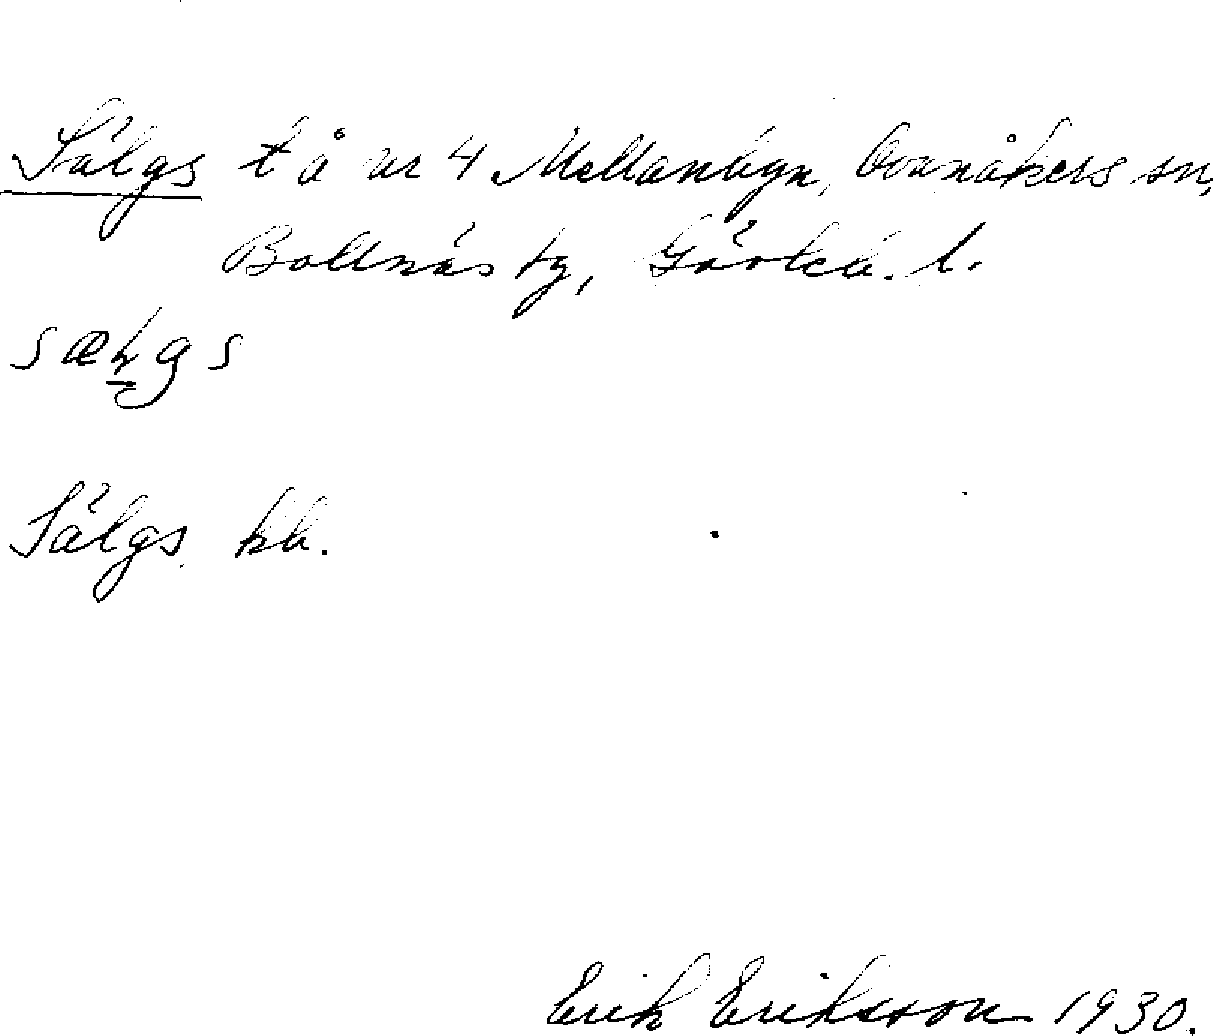 Sälgs t å nr 4 Mellanbyn, Ovanåkers sn,
Bollnäs tg, Gävleb. l.
sælgs
Sälgs kb.
Erik Eriksson 1930.